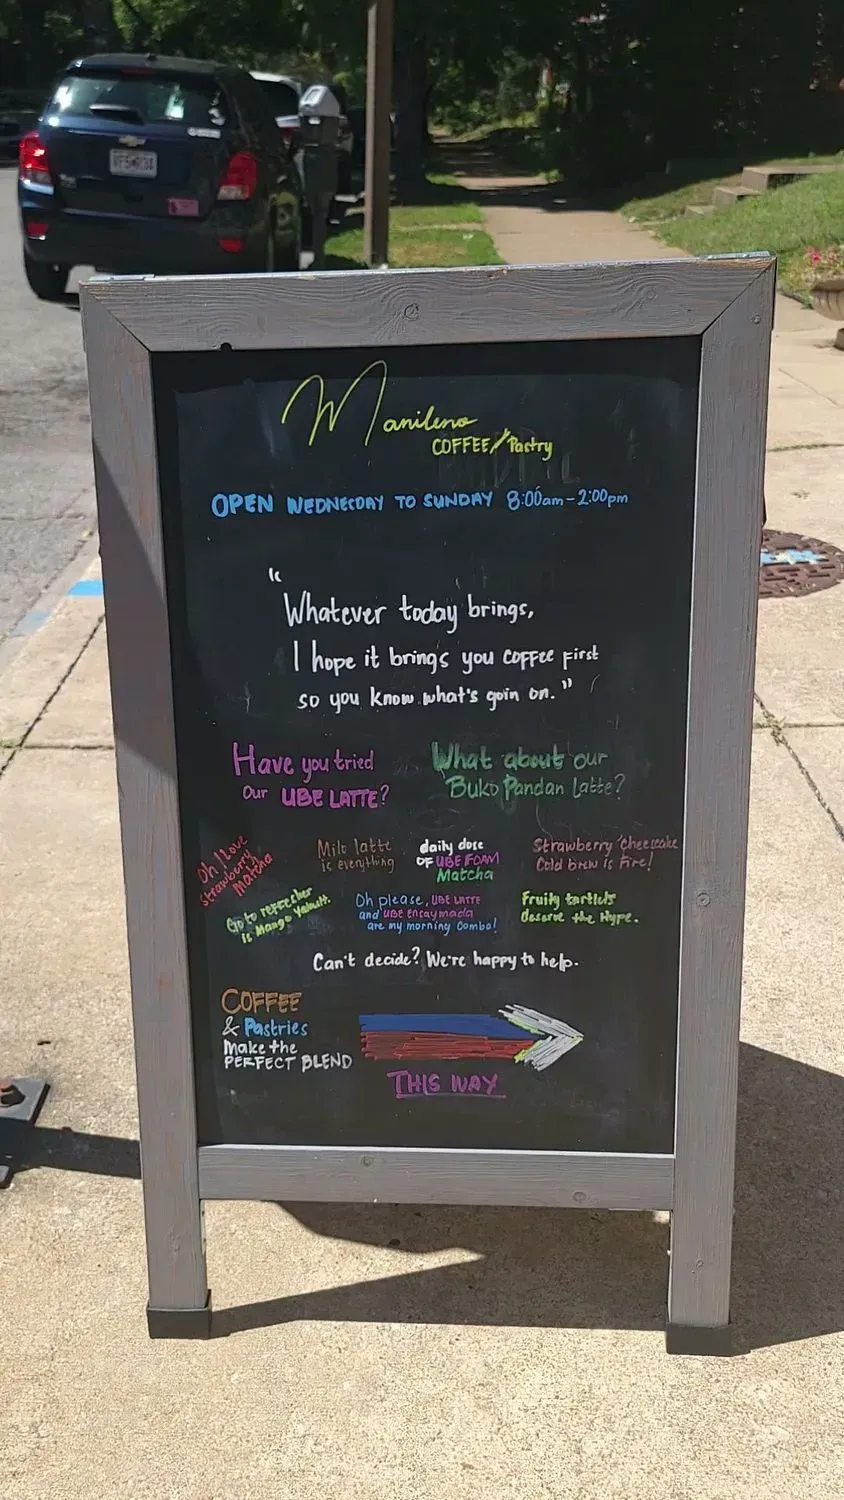 Manileno
COFFEE/Pastry
OPEN WEDNESDAY TO SUNDAY 8:00am-2:00pm
"
Whatever today brings,
I hope it brings you COFFEE First
so you know what's goin on."
Have you tried
Our UBE LATTE?
What about our
Buko Pandan Latte?
Oh I love
Strawberry
Matcha
Milo latte
is everything
daily dose
OF UBE FOAM
Matcha
Strawberry Cheesecake
Cold brew is Fire!
Go to refresher
is Mango Yakult.
Oh please, UBE LATTE
and UBE ensaymada
are my morning Combo!
Fruity
deserve the Hype.
Can't decide? We're happy to help.
COFFEE
& Pastries
Make the
PERFECT BLEND
THIS WAY